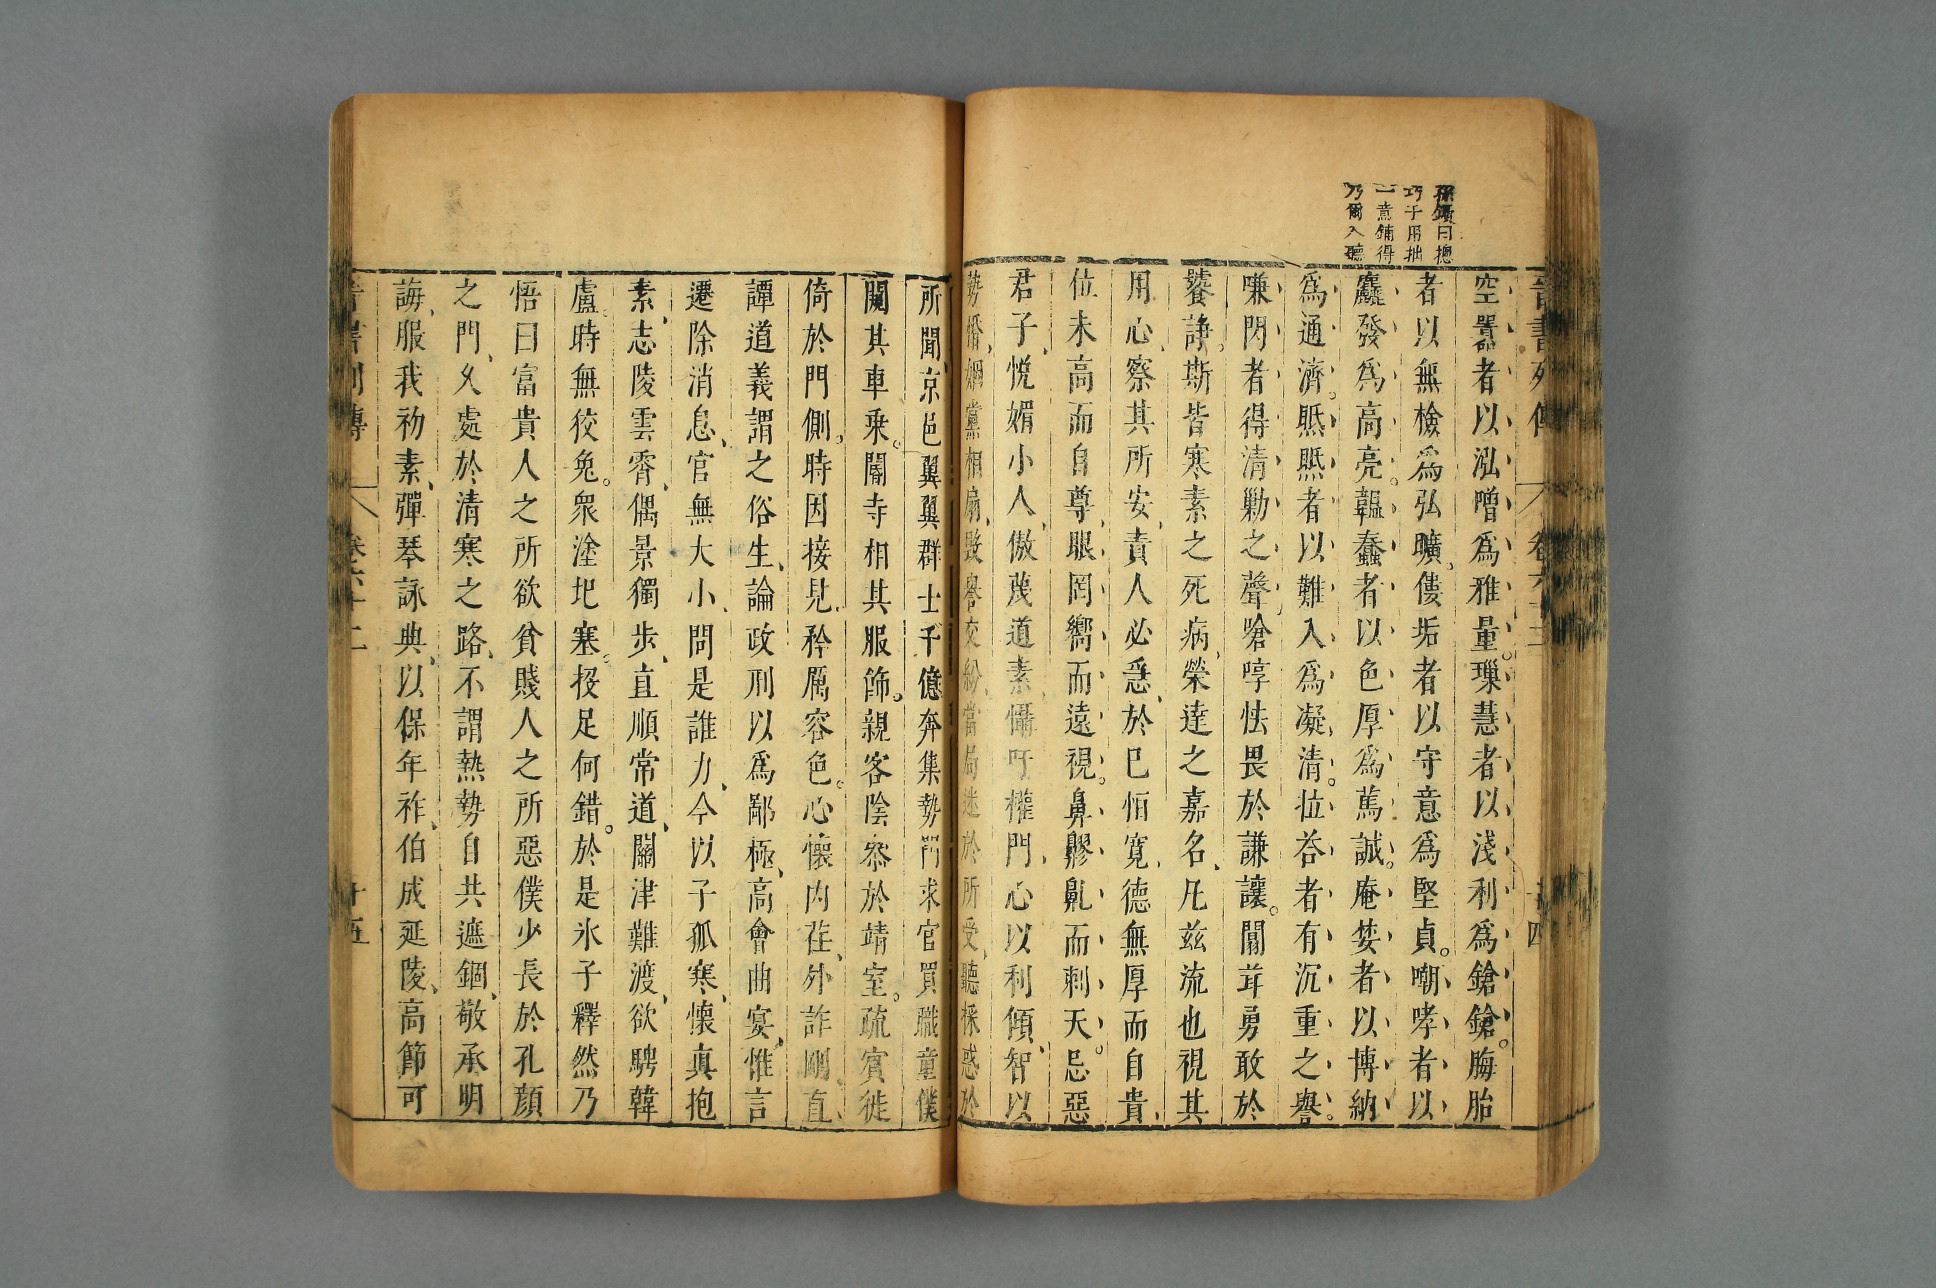 晉書列傳 卷六十二 十四
孫鑛曰撼
巧于用拙
一意鋪得
乃爾入聽
空嚚者以泓噌爲雅量。璅慧者以淺利爲鎗鎗。脢胎
者以無檢爲弘曠、僂垢者以守意爲堅貞。嘲哮者以
麤發爲高亮。韞蠢者以色厚爲篤誠。庵婪者以博納
爲通濟。眂眂者以難入爲凝清。拉荅者有沉重之譽。
嗛閃者得清勦之聲、嗆啍怯畏於謙讓。闒茸勇敢於
饕諍。斯皆寒素之死病、榮達之嘉名、凡兹流也視其
用心、察其所安、責人必急、於已恒寛、德無厚而自貴、
位未高而自尊、眼罔嚮而遠視。鼻𩕄鼽而刺天。忌惡
君子、悅媚小人、傲蔑道素、懾吁權門、心以利傾、智以
勢惛、姻黨相扇、毀譽交紛、當局迷於所受、聽採惑於
所聞、京邑翼翼群士千億、奔集勢門求官買職童僕
闚其車乗。閽寺相其服飾。親客陰叅於靖室。疏賓徙
倚於門側。時因接見、矜厲容色。心懷内荏、外詐剛直、
譚道義謂之俗生、論政刑以爲鄙極、高會曲宴、惟言
遷除消息、官無大小、問是誰力、今以子孤寒、懷真抱
素、志陵雲霄、偶景獨歩、直順常道、關津難渡、欲騁韓
盧。時無狡兔。衆塗圯塞。投足何錯。於是氷子釋然乃
悟曰富貴人之所欲貧賤人之所惡僕少長於孔顏
之門、乆處於清寒之路、不謂熱勢自共遮錮、敬承明
誨、服我初素、彈琴詠典、以保年祚、伯成延陵、高節可
晉書列傳 卷六十二 十五